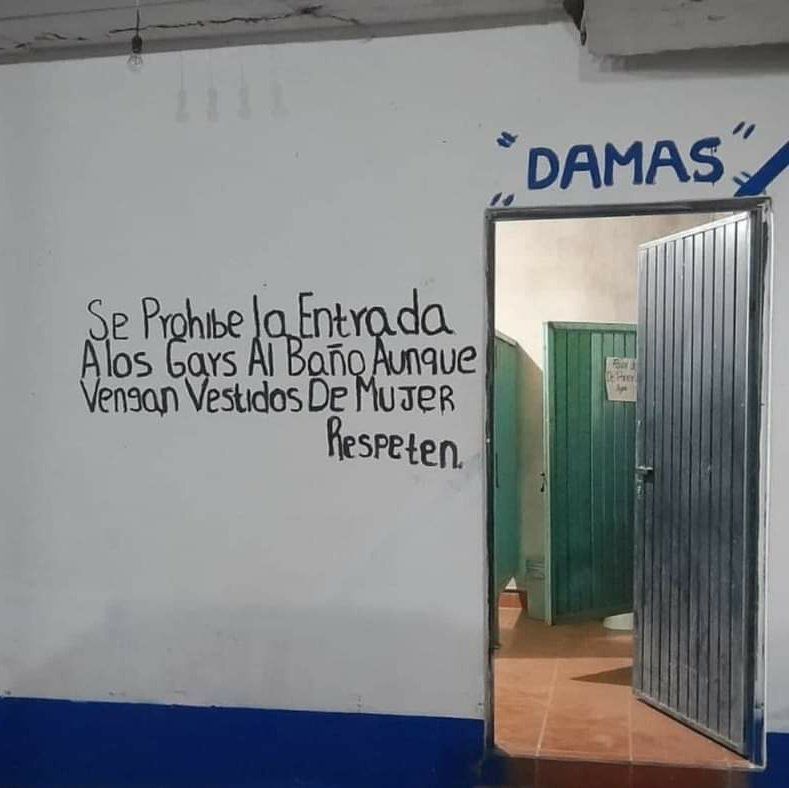 "DAMAS"
Se Prohibe la Entrada
A los Gays Al Baño Aunque
Vengan Vestidos De Mujer
Respeten.